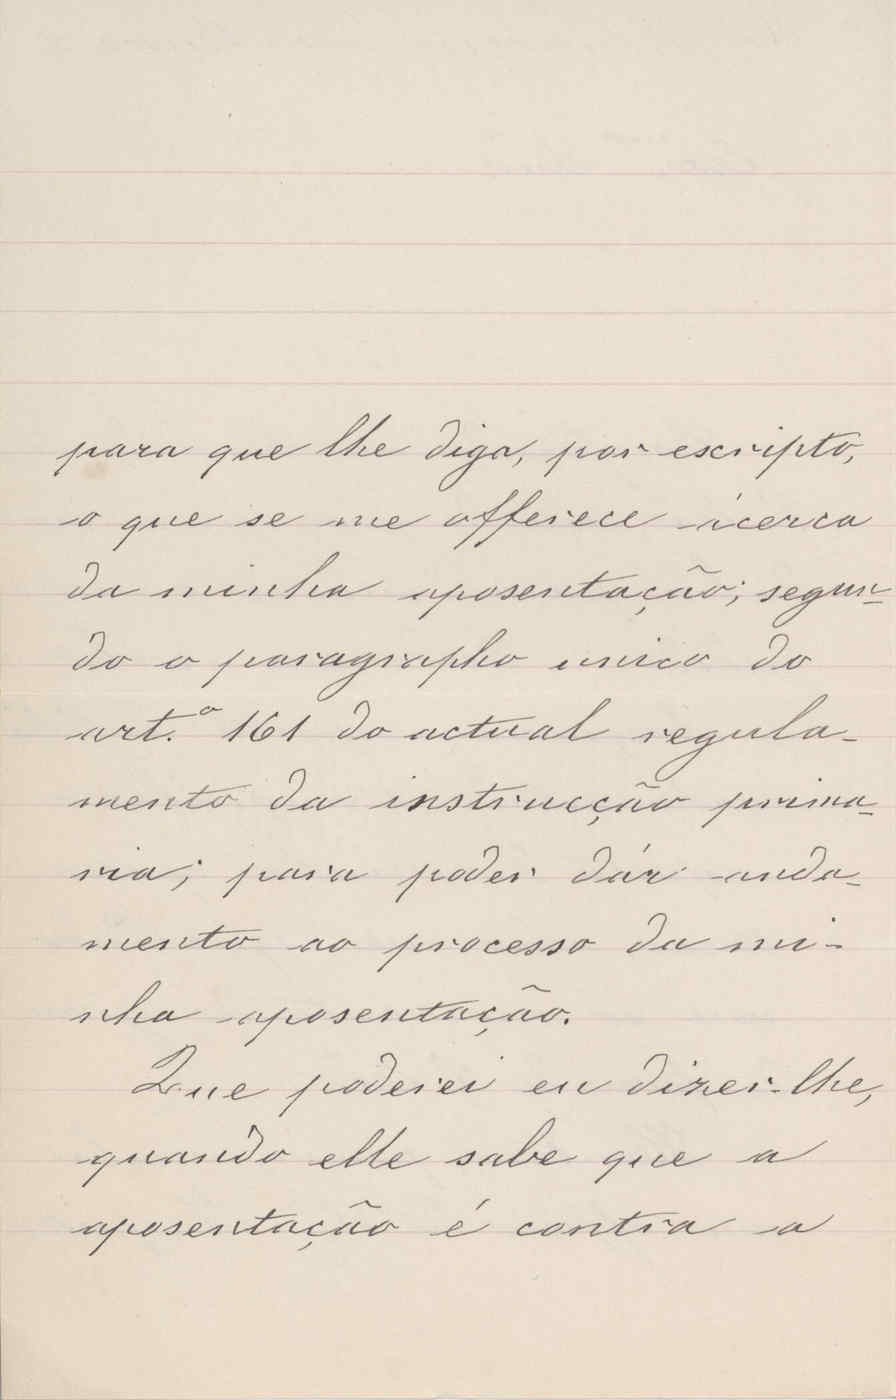 para que lhe diga, por escripto,
o que se me offerece ácerca
da minha aposentação; segun-
do o paragrapho unico do
art.º 161 do actual regula-
mento da instrucção prima-
ria; para poder dár anda-
mento ao processo da mi-
nha aposentação.
Que poderei eu dizer-lhe,
quando elle sabe que a
aposentação é contra a